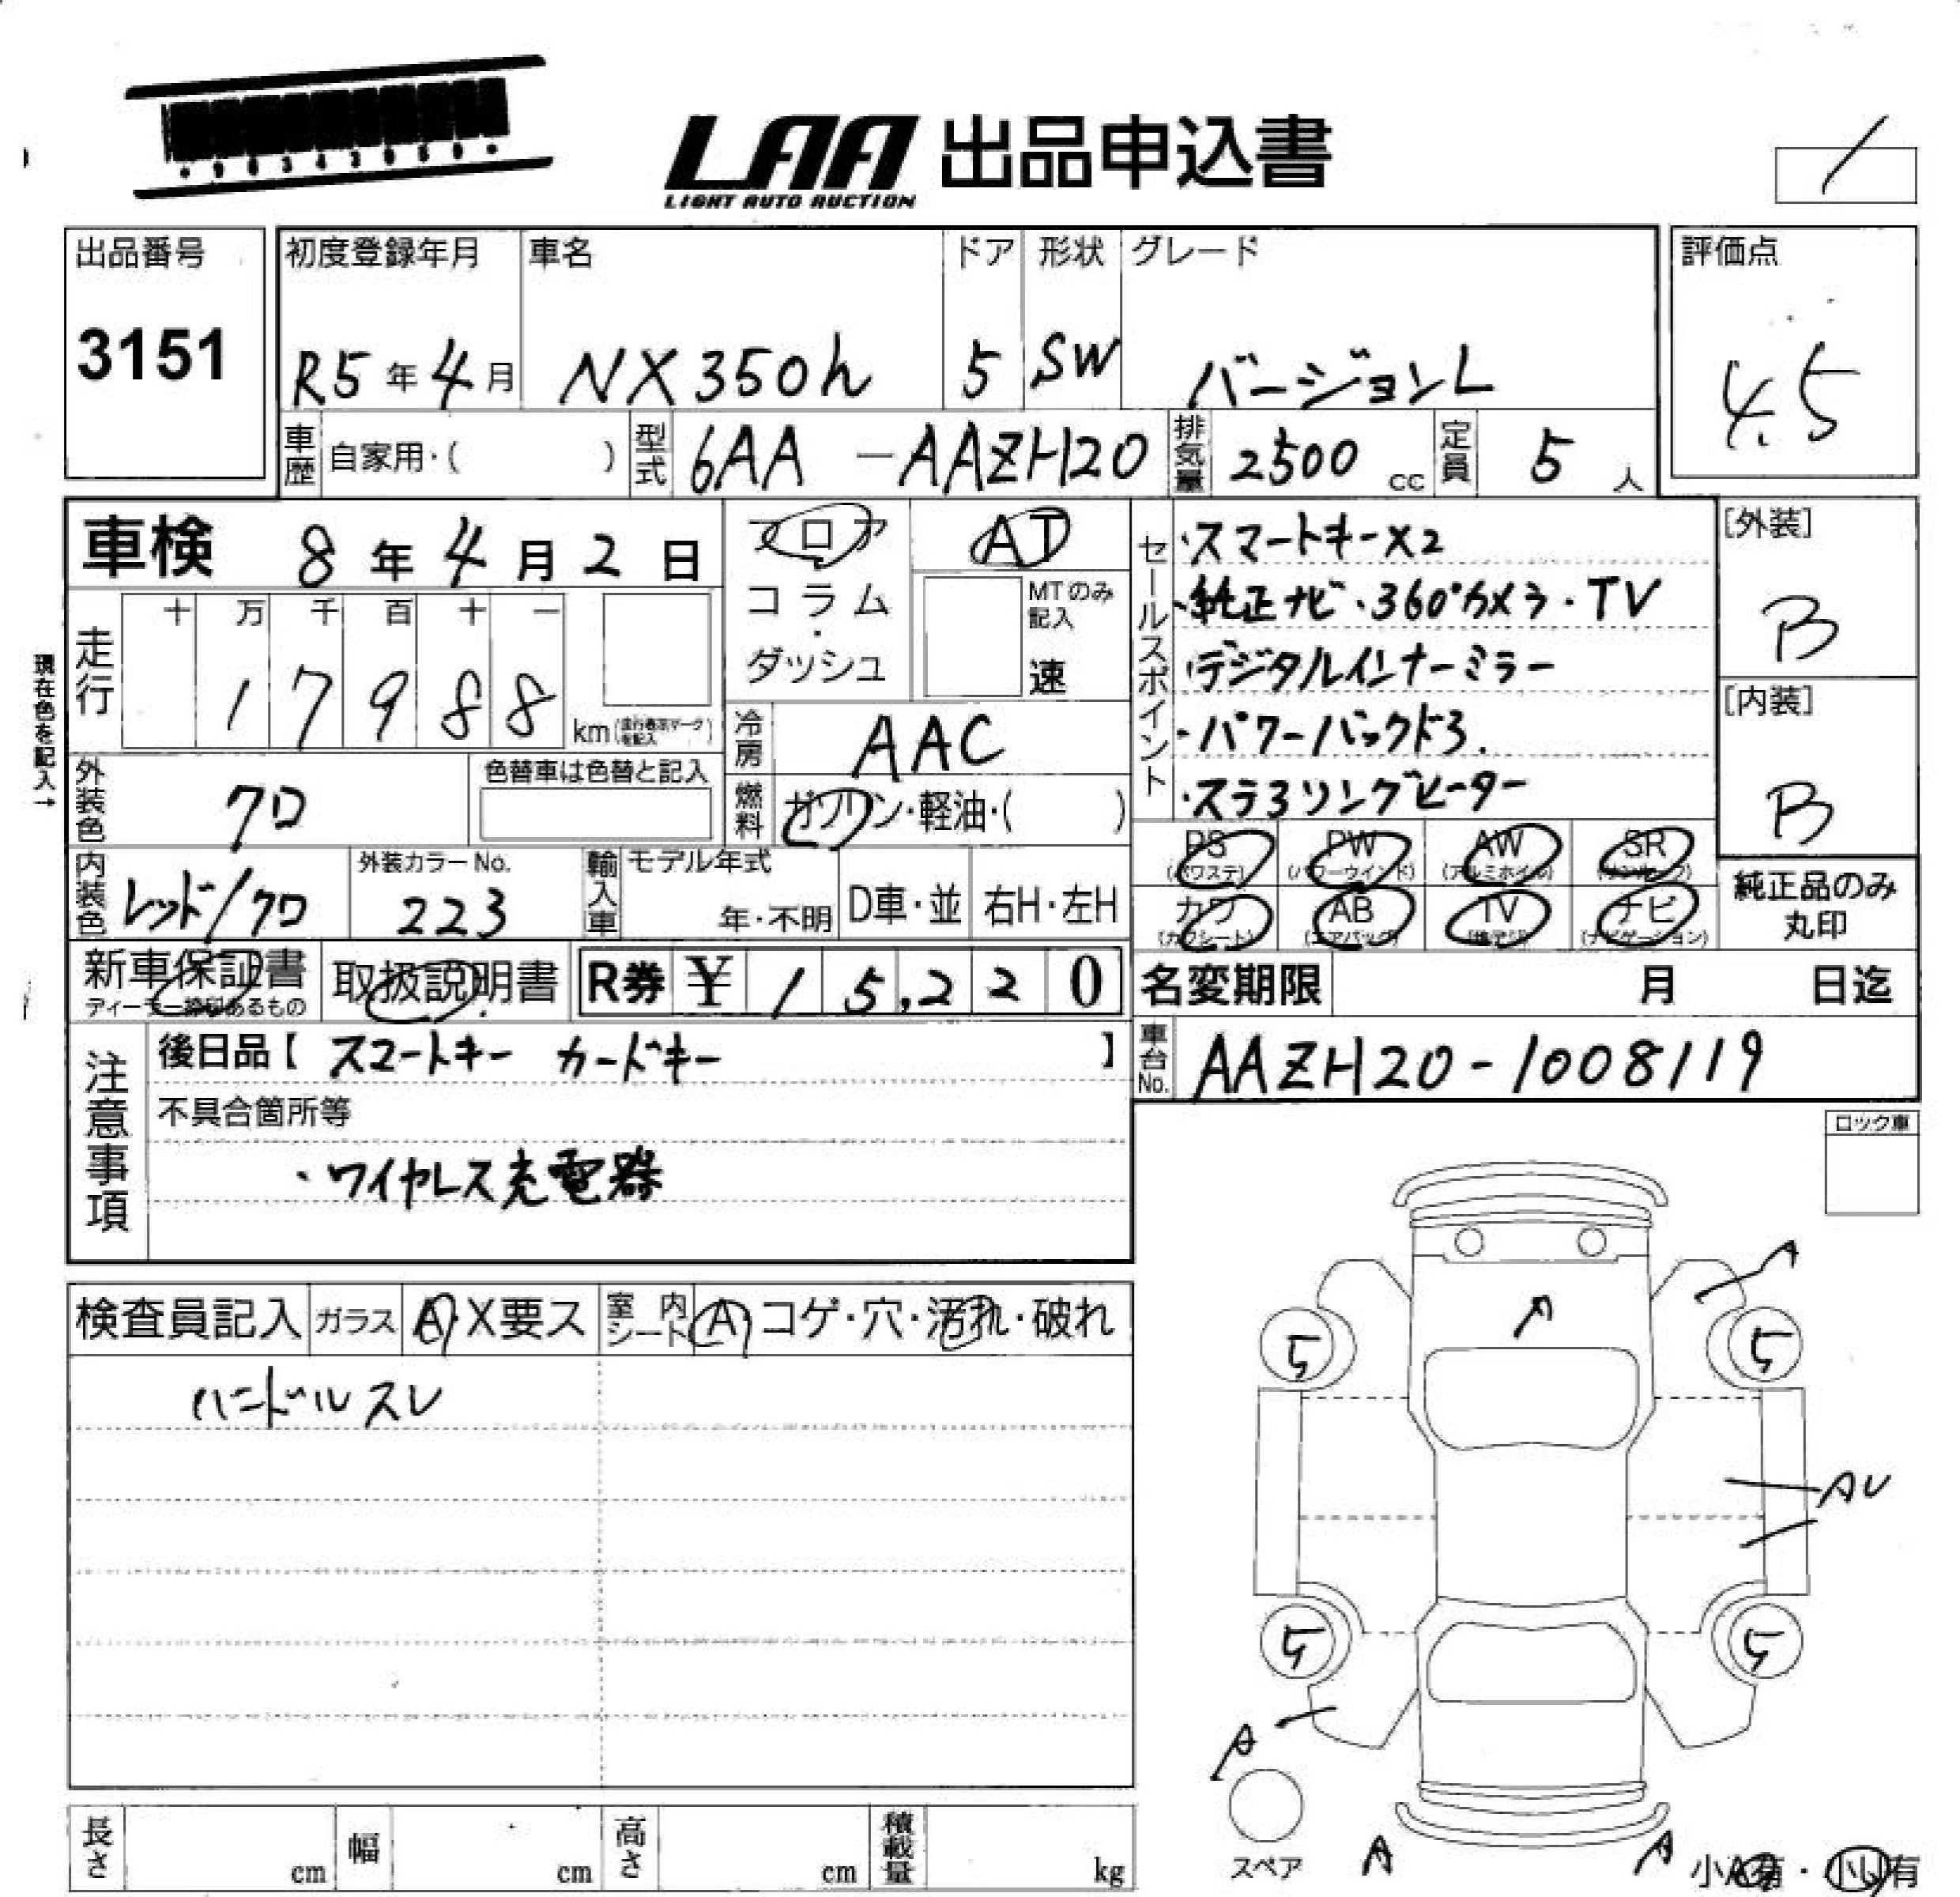 LAA 出品申込書
LIGHT AUTO AUCTION
出品番号
3151
初度登録年月
R5年4月
車名
NX350h
ドア
5
形状
SW
グレード
バージョンL
評価点
4.5
車歴
自家用・( )
型式
6AA-AAZH20
排気量
2500 cc
定員
5 人
車検 8年4月2日
走行
十 万 千 百 十 一
17988
km
現在色を記入→
外装色
クロ
色替車は色替と記入
内装色
レッド/クロ
外装カラーNo.
223
フロア
コラム
・
ダッシュ
AT
MTのみ記入
速
冷房
AAC
燃料
ガソリン・軽油・( )
輸入車
モデル年式
年・不明
D車・並
右H・左H
セールスポイント
・スマートキーX2
・純正ナビ・360°カメラ・TV
・デジタルインナーミラー
・パワーバックドア.
・ステアリングヒーター
[外装]
B
[内装]
B
PS
(パワステ)
PW
(パワーウインド)
AW
(アルミホイル)
SR
(サンルーフ)
カワ
(カワシート)
AB
(エアバッグ)
TV
(地デジ)
ナビ
(ナビゲーション)
純正品のみ
丸印
新車保証書
取扱説明書
R券 ¥15,220
名変期限 月 日迄
車台No.
AAZH20-1008119
注意事項
後日品【 スマートキー カードキー 】
不具合箇所等
・ワイヤレス充電器
ロック車
検査員記入
ガラス
A・X要ス
室内シート
A コゲ・穴・汚れ・破れ
ハンドルスレ
A
A
5
5
AU
5
5
A
スペア
A
A
長さ cm
幅 cm
高さ cm
積載量 kg